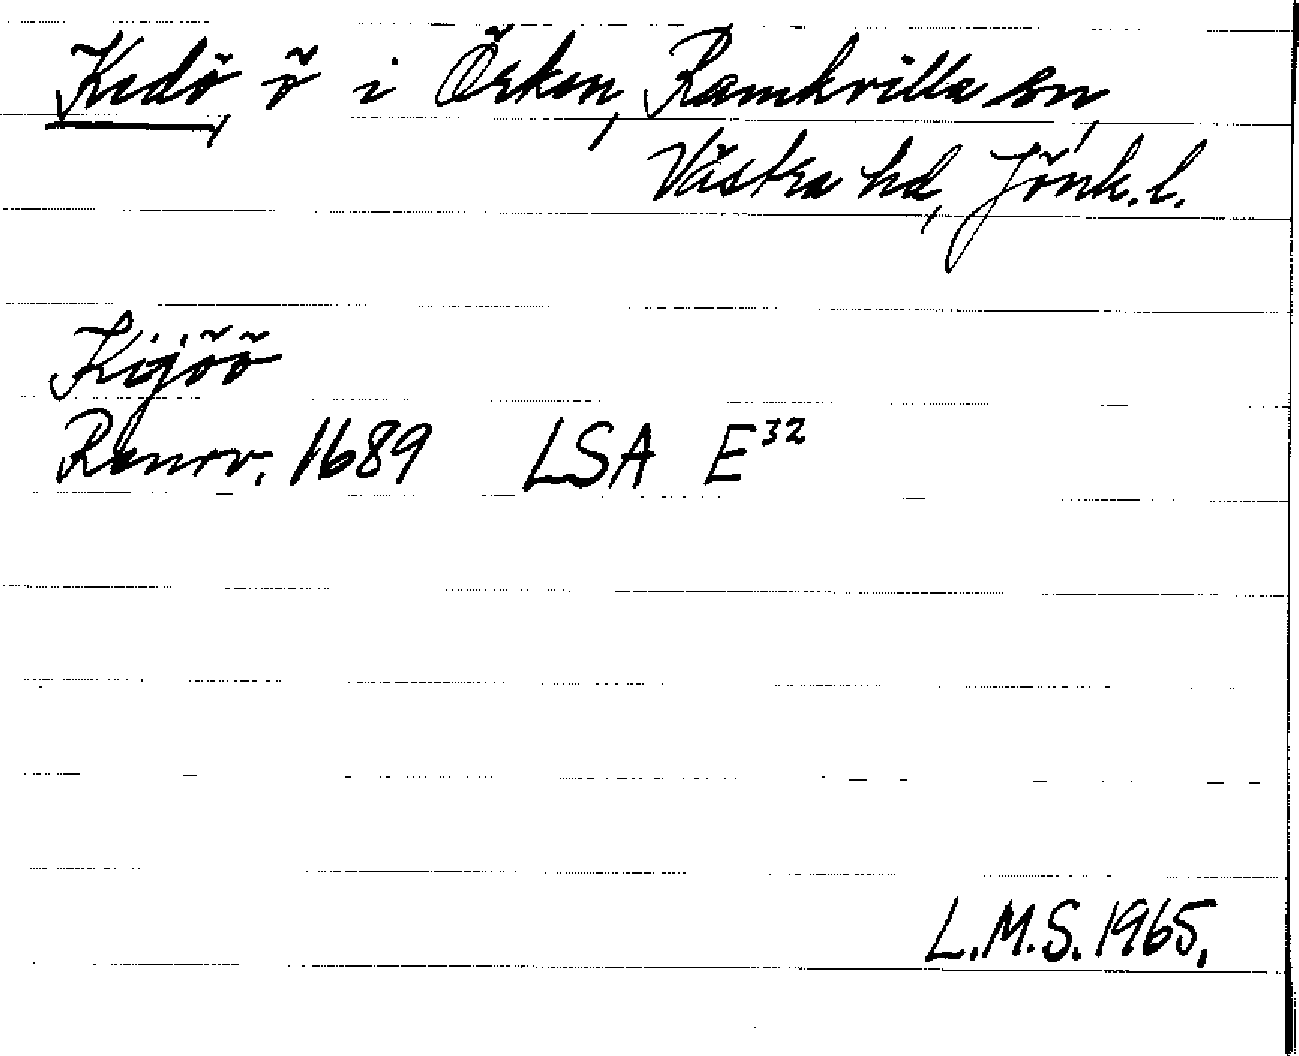 Kedö, ö i Örken, Ramkvilla sn,
Västra hd, Jönk. l.
Kijöö
Renov. 1689 LSA E³²
L.M.S. 1965.